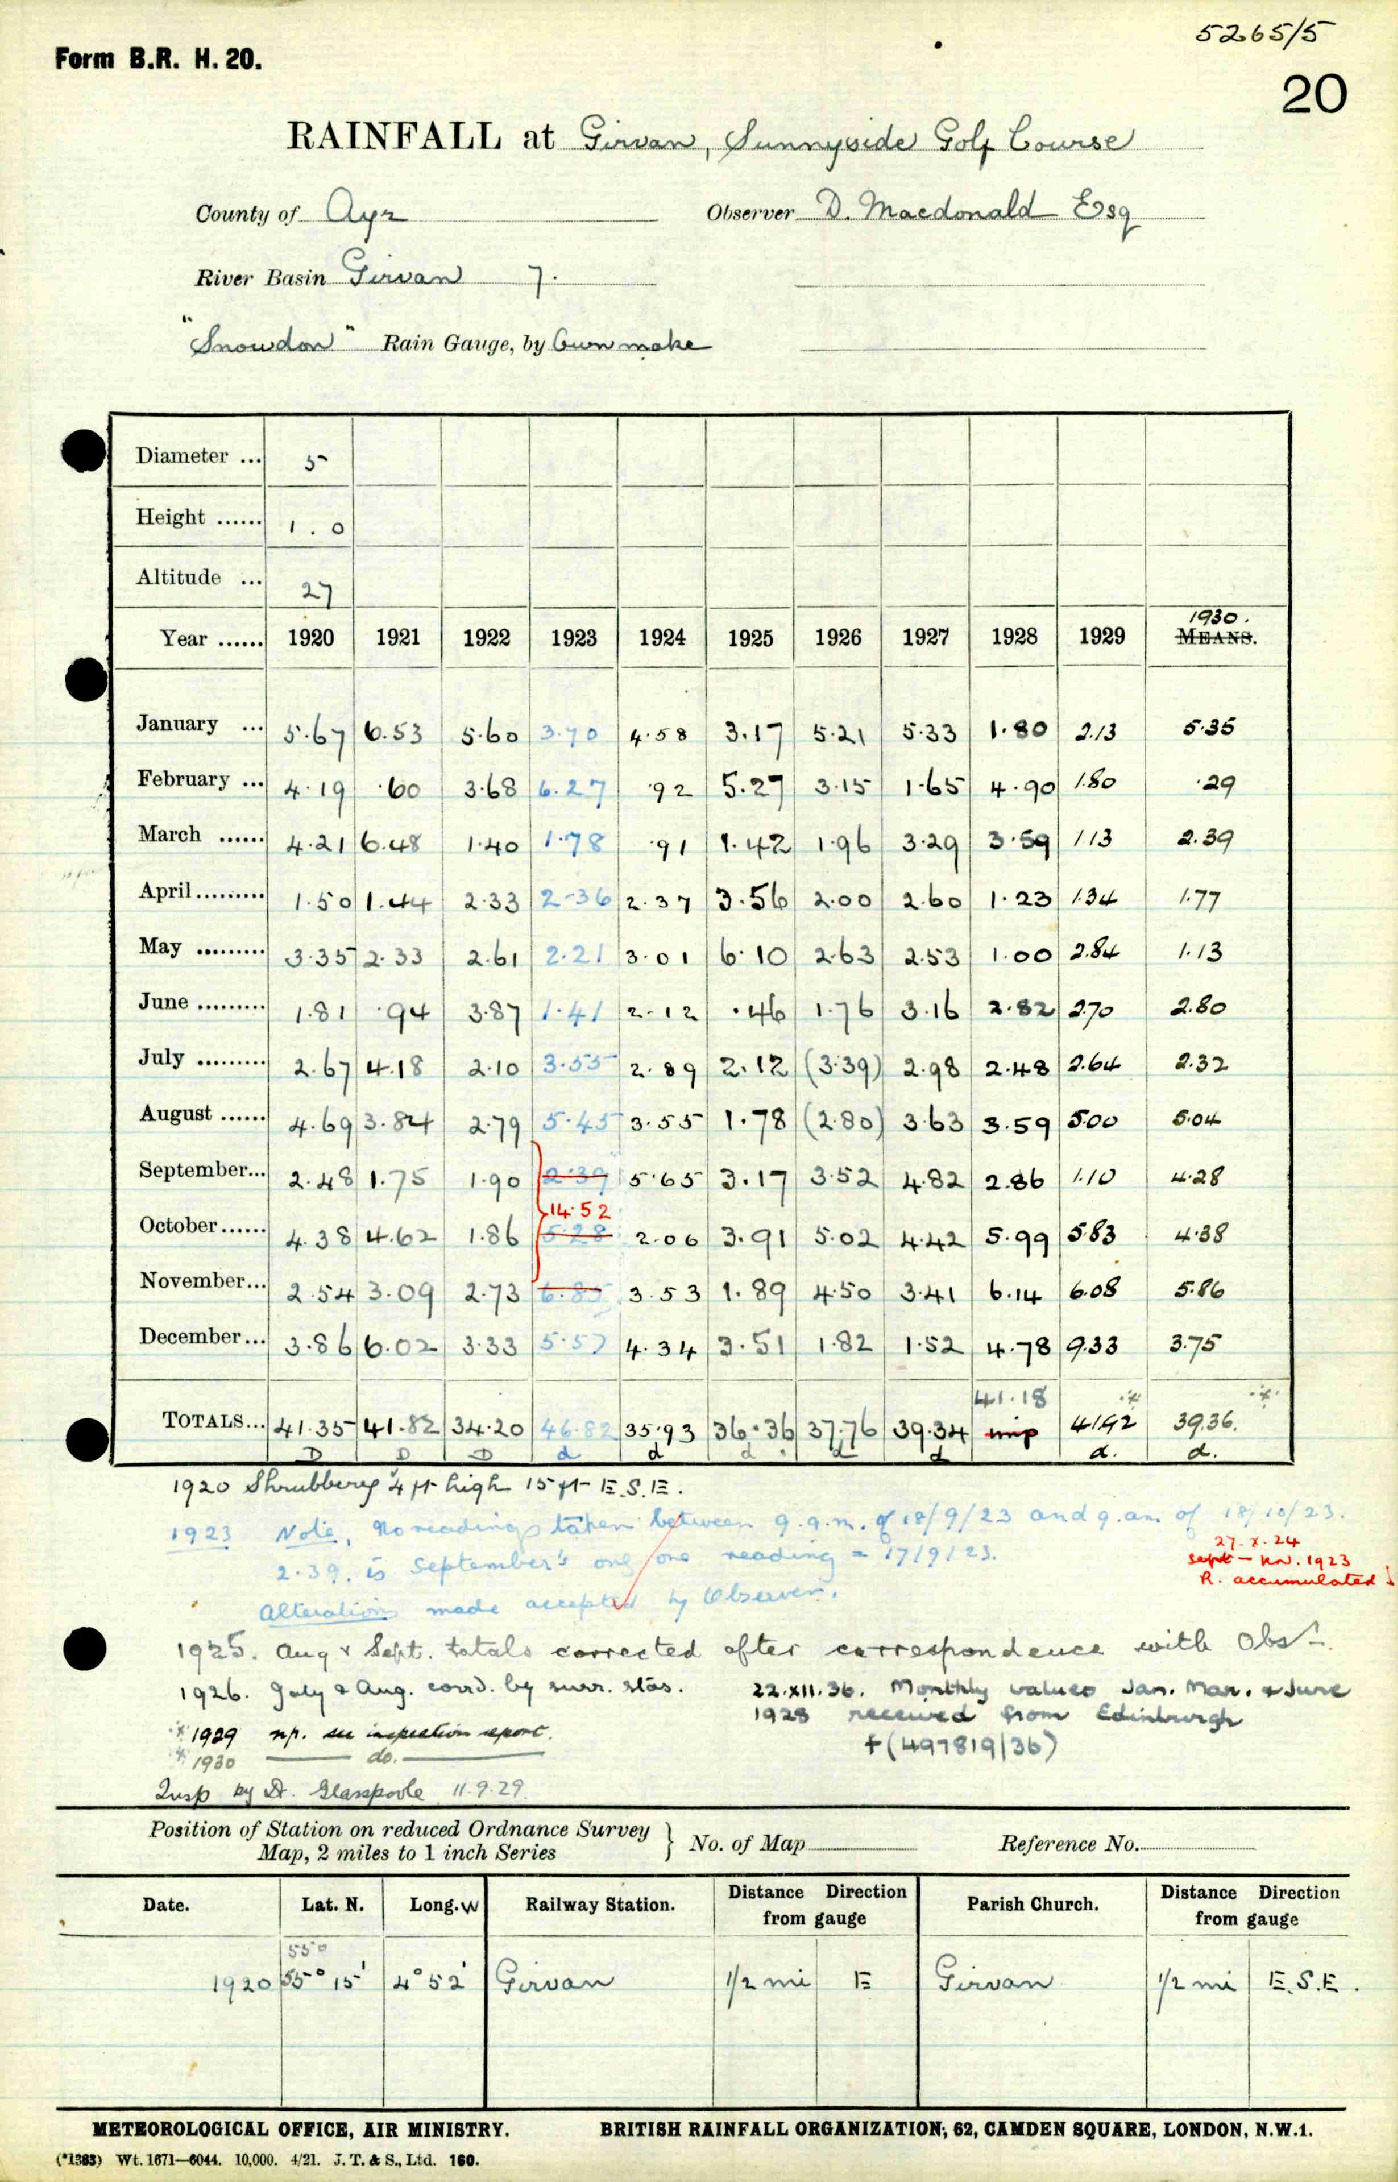 5265/5
Form B.R. H. 20.
20
RAINFALL at Girvan, Sunnyside Golf Course
County of Ayr Observer D. Macdonald Esq
River Basin Girvan 7.
"Snowdon" Rain Gauge, by Own make
Diameter ... 5
Height ...... 1.0
Altitude ... 27
1930.
Year ...... 1920 1921 1922 1923 1924 1925 1926 1927 1928 1929 MEANS.
January ... 5.67 6.53 5.60 3.70 4.58 3.17 5.21 5.33 1.80 2.13 5.35
February ... 4.19 .60 3.68 6.27 .92 5.27 3.15 1.65 4.90 1.80 .29
March ...... 4.21 6.48 1.40 1.78 .91 1.42 1.96 3.29 3.59 1.13 2.39
April......... 1.50 1.44 2.33 2.36 2.37 3.56 2.00 2.60 1.23 1.34 1.77
May ......... 3.35 2.33 2.61 2.21 3.01 6.10 2.63 2.53 1.00 2.84 1.13
June ......... 1.81 .94 3.87 1.41 2.12 .46 1.76 3.16 2.82 2.70 2.80
July ......... 2.67 4.18 2.10 3.55 2.89 2.12 (3.39) 2.98 2.48 2.64 2.32
August ...... 4.69 3.84 2.79 5.45 3.55 1.78 (2.80) 3.63 3.59 5.00 5.04
September... 2.48 1.75 1.90 2.39 5.65 3.17 3.52 4.82 2.86 1.10 4.28
14.52
October...... 4.38 4.62 1.86 5.28 2.06 3.91 5.02 4.42 5.99 5.83 4.38
November... 2.54 3.09 2.73 6.85 3.53 1.89 4.50 3.41 6.14 6.08 5.86
December... 3.86 6.02 3.33 5.57 4.34 3.51 1.82 1.52 4.78 9.33 3.75
41.18
TOTALS... 41.35 41.82 34.20 46.82 35.93 36.36 37.76 39.34 imp 41.92 39.36.
D D D d d d d d d. d.
1920 Shrubbery 4 ft high 15 ft E.S.E.
1923 Note, No readings taken between 9.a.m. of 18/9/23 and 9.am. of 18/10/23.
2.39. is September's one/one reading = 17/9/23.
27.x.24
Sept - Nov. 1923
R. accumulated
Alterations made accepted by Observer.
1925. Aug & Sept. totals corrected after correspondence with Obsr.
1926. July & Aug. corrd. by surr. stas.
22.XII.36. Monthly values Jan. Mar. & June
1928 received from Edinburgh
+(497819/36)
* 1929 np. see inspection report.
* 1930 do.
Insp by Dr. Glasspoole 11.9.29
Position of Station on reduced Ordnance Survey
Map, 2 miles to 1 inch Series } No. of Map Reference No.
Date. Lat. N. Long. W Railway Station. Distance Direction from gauge Parish Church. Distance Direction from gauge
55°
1920 55° 15' 4° 52' Girvan 1/2 mi E Girvan 1/2 mi E.S.E.
METEOROLOGICAL OFFICE, AIR MINISTRY. BRITISH RAINFALL ORGANIZATION, 62, CAMDEN SQUARE, LONDON, N.W.1.
(*1383) Wt. 1671—6044. 10,000. 4/21. J. T. & S., Ltd. 160.